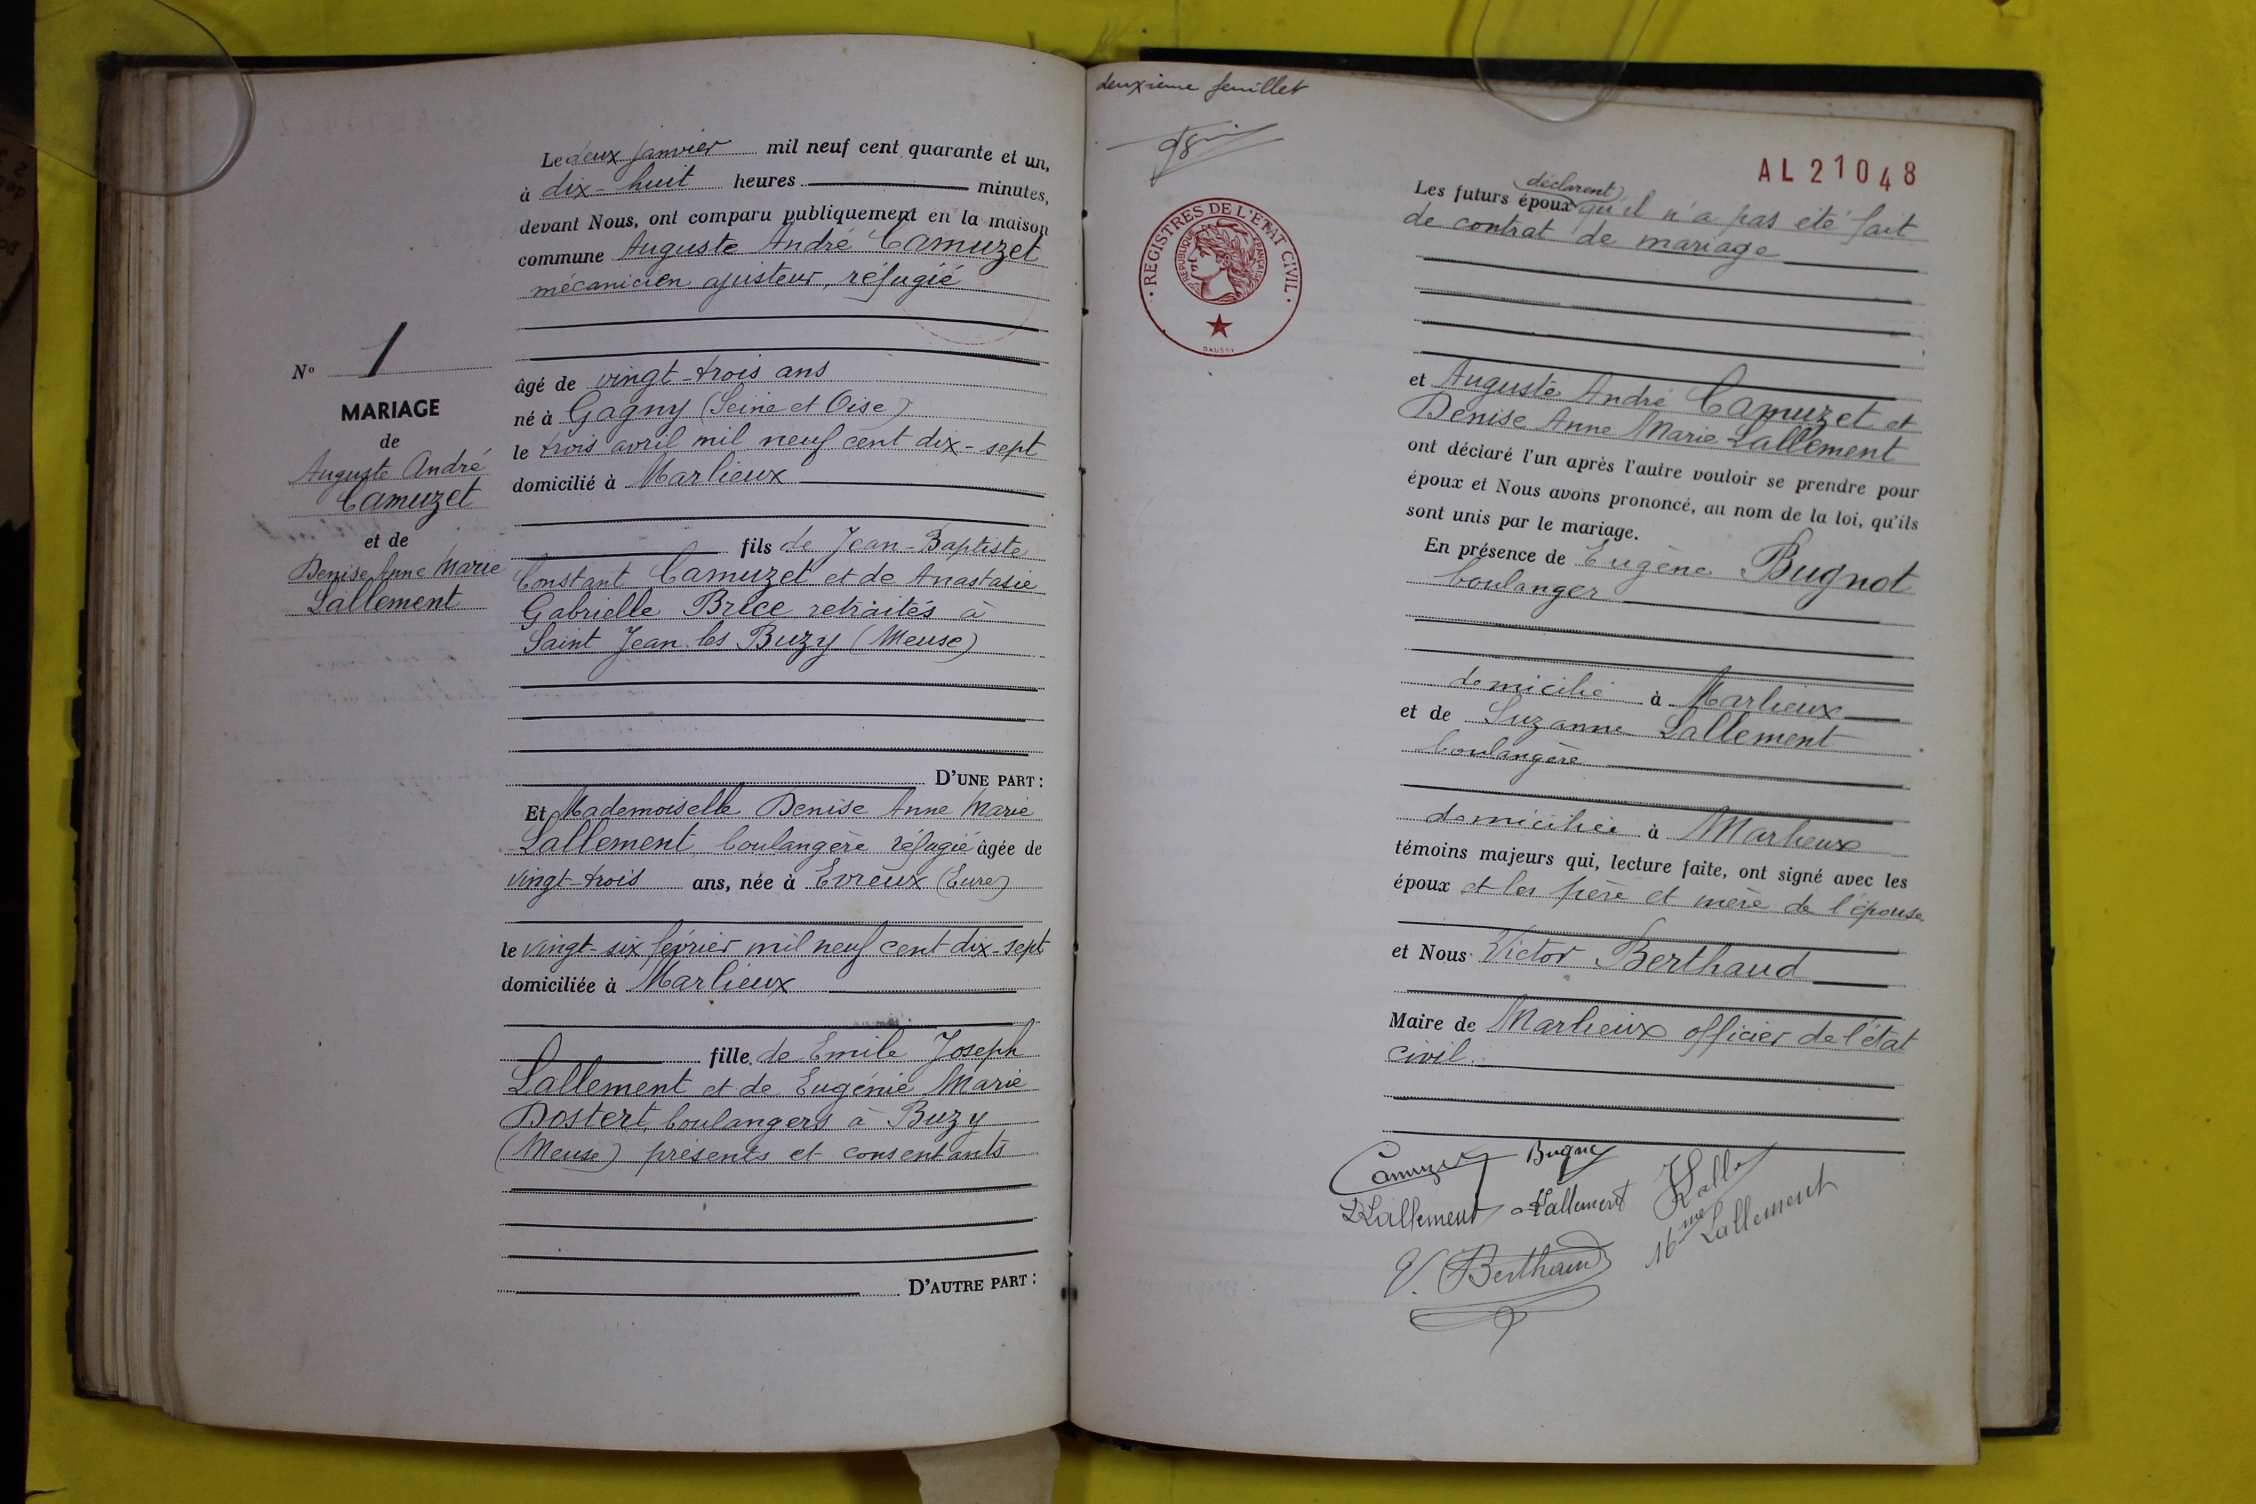 Le deux janvier mil neuf cent quarante et un,
à dix-huit heures minutes,
devant Nous, ont comparu publiquement en la maison
commune Auguste André Camuzet
mécanicien ajusteur, réfugié
âgé de vingt-trois ans
né à Gagny (Seine et Oise)
le trois avril mil neuf cent dix-sept
domicilié à Marlieux
fils de Jean-Baptiste
Constant Camuzet et de Anastasie
Gabrielle Brice retraités à
Saint Jean les Buzy (Meuse)
D'UNE PART :
Et Mademoiselle Denise Anne Marie
Lallement, boulangère réfugié âgée de
vingt-trois ans, née à Evreux (Eure)
le vingt-six février mil neuf cent dix-sept
domiciliée à Marlieux
fille de Emile Joseph
Lallement et de Eugénie Marie
Dostert, boulangers à Buzy
(Meuse) présents et consentants
D'AUTRE PART :
No 1
MARIAGE
de
Auguste André
Camuzet
et de
Denise Anne Marie
Lallement
deuxième feuillet
AL21048
REGISTRES DE L'ETAT CIVIL
REPUBLIQUE FRANÇAISE
DAUSSY
déclarent
Les futurs époux qu'il n'a pas été fait
de contrat de mariage
et Auguste André Camuzet et
Denise Anne Marie Lallement
ont déclaré l'un après l'autre vouloir se prendre pour
époux et Nous avons prononcé, au nom de la loi, qu'ils
sont unis par le mariage.
En présence de Eugène Bugnot
boulanger
domicilié à Marlieux
et de Suzanne Lallement
boulangère
domiciliée à Marlieux
témoins majeurs qui, lecture faite, ont signé avec les
époux et les père et mère de l'épouse
et Nous Victor Berthaud
Maire de Marlieux officier de l'état
civil.
Camuzet Bugnot
Lallement Lallement
Mme Lallement
V. Berthaud